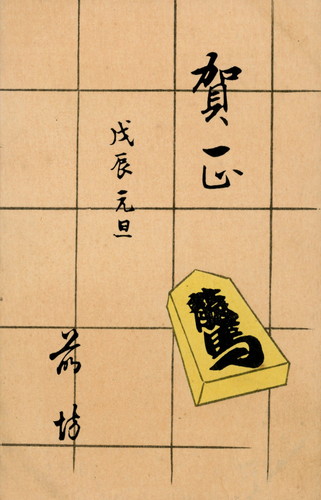 賀正
戊辰元旦
龍馬